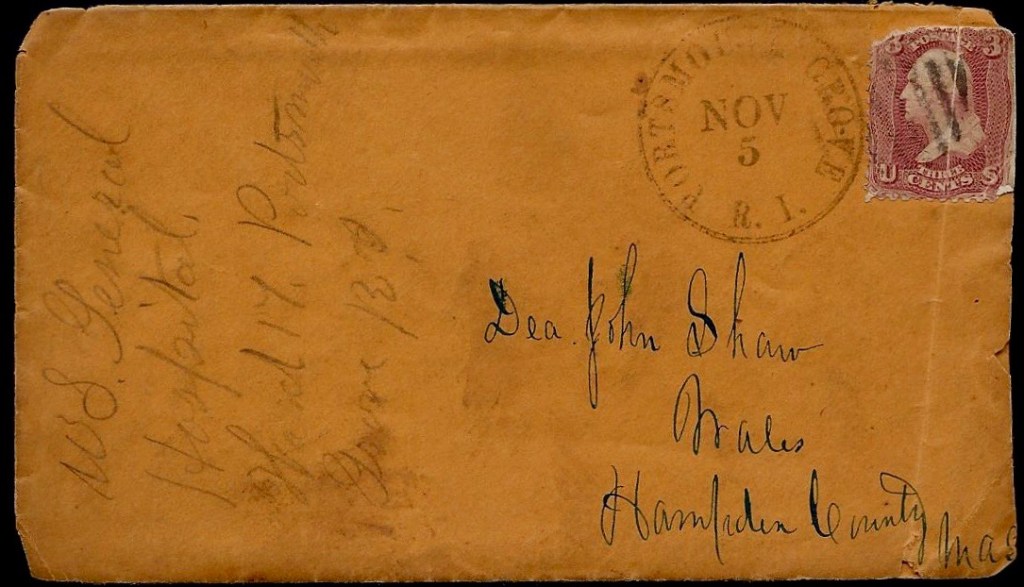 U.S. General
Hospital,
Ward 14. Portsmouth
Grove R.I.
PORTSMOUTH GROVE
NOV
5
R. I.
3 3
U THREE S
CENTS
Dea. John Shaw
Wales
Hampden County
Mas